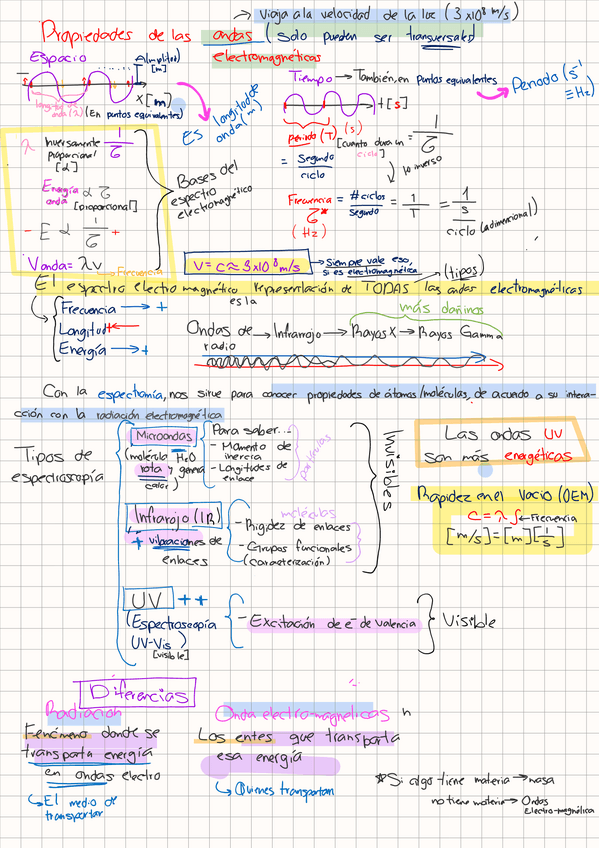 → Viaja a la velocidad de la luz (3x10⁸ m/s)
Propiedades de las ondas (solo pueden ser transversales)
electromagnéticas
Espacio
A(mplitud)
[m]
x[m]
longitud de
onda (λ) (En puntos equivalentes)
Es longitud de
onda (m)
Tiempo → También, en puntos equivalentes
Periodo (s⁻¹
≡Hz)
t[s]
periodo (T) (s)
[cuanto dura un
ciclo]
= 1/τ
= Segundo/ciclo
lo inverso
Frecuencia = #ciclos/segundo = 1/T = 1/s
τ*
(Hz)
ciclo (adimensional)
λ Inversamente 1/τ
proporcional
[α]
Energía α τ
onda [proporcional]
- E α 1/τ +
Vonda= λν
→ Frecuencia
Bases del
espectro
electromagnético
V = C ≈ 3x10⁸ m/s → Siempre vale eso,
si es electromagnética
(tipos)
El espectro electro magnético es la representación de TODAS las ondas electromagnéticas
Frecuencia → +
Longitud ←
Energía → +
más dañinos
Ondas de radio → Infrarrojo → Rayos X → Rayos Gamma
Con la espectromía, nos sirve para conocer propiedades de átomos/moléculas, de acuerdo a su intera-
cción con la radiación electromagnética
Tipos de
espectroscopía
Microondas
(molécula H₂O
rota y genera
calor)
Para saber...
- Momento de
inercia
- Longitudes de
enlace
Infrarrojo (IR)
+ vibraciones de
enlaces
moléculas
- Rigidez de enlaces
- Grupos funcionales
(caracterización)
Invisibles
UV ++
(Espectroscopía
UV-Vis)
[visible]
- Excitación de e⁻ de valencia
Visible
Las ondas UV
son más energéticas
Rapidez en el vacío (OEM)
C = λ f ← Frecuencia
[m/s] = [m][1/s]
Diferencias
Radiación
Fenómeno donde se
transporta energía
en ondas electro
↳ El medio de
transportar
Onda electro-magnéticas
Los entes que transporta
esa energía
↳ Quienes transportan
*Si algo tiene materia → masa
no tiene materia → Ondas
Electro-magnética